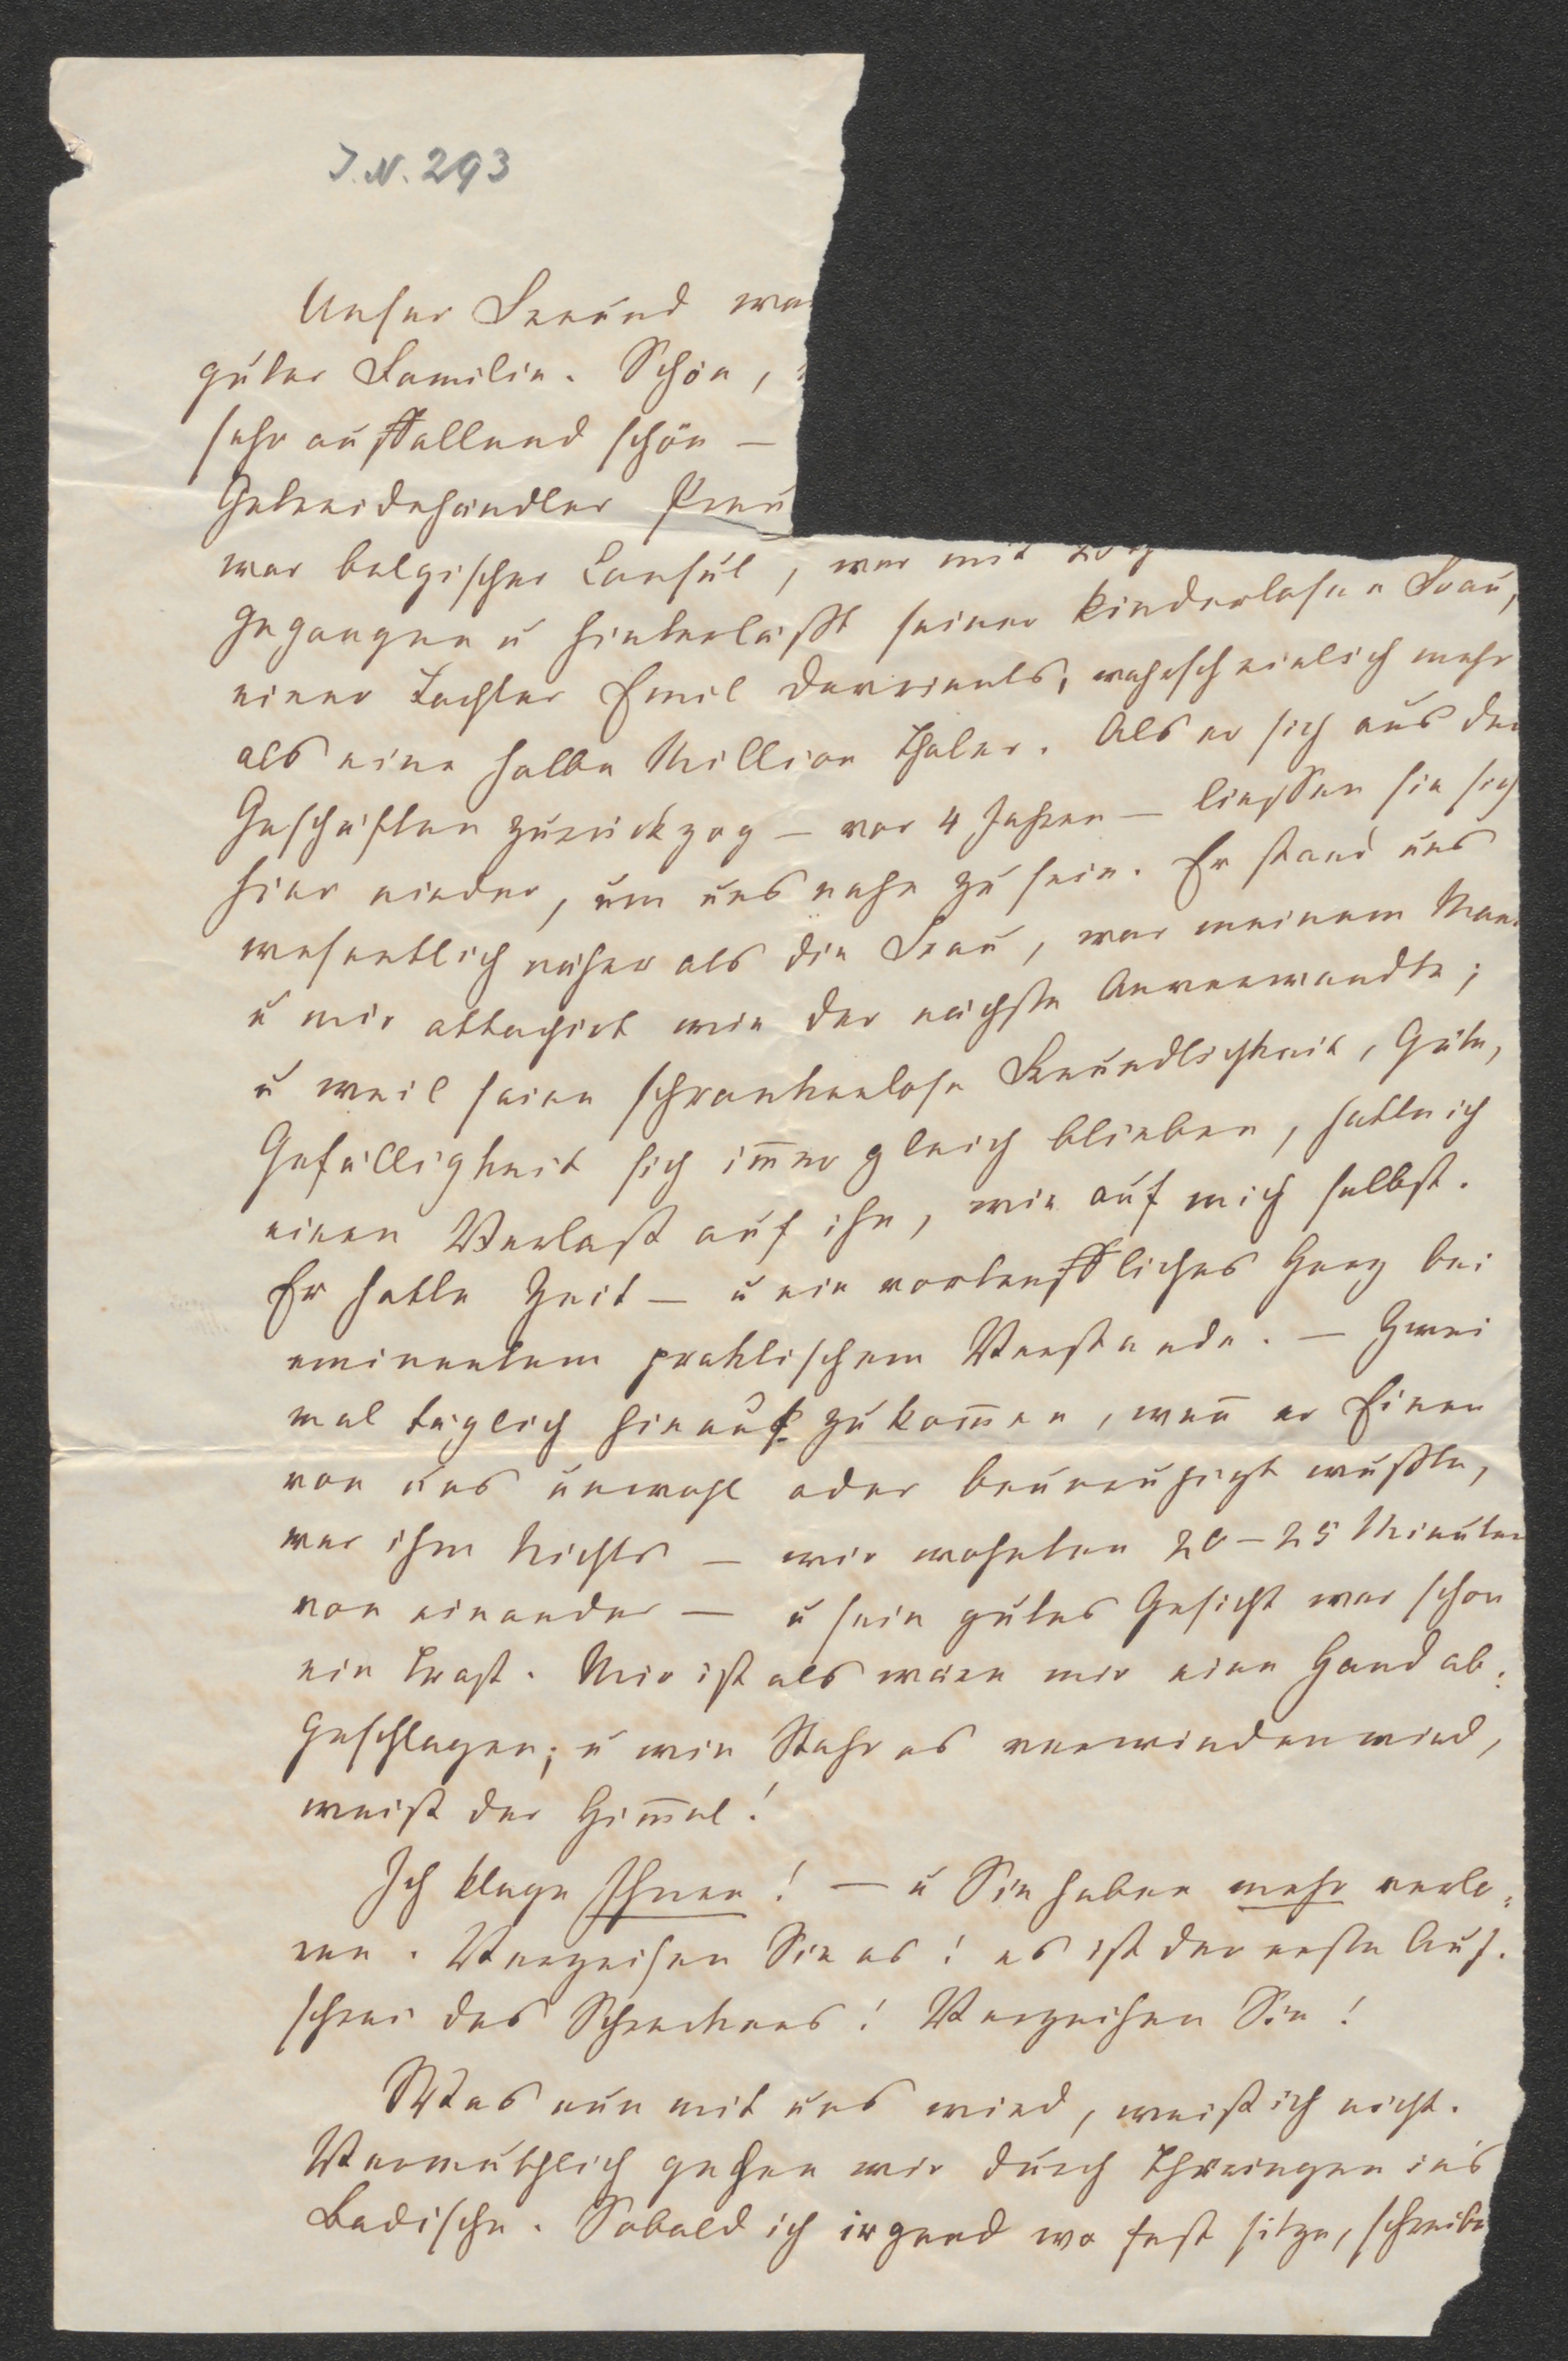 J. N. 293
Unser Freund wa
guter Familie. Schön,
sehr auffallend schön —
Getreidehändler Preu
war belgischer Consul, war mit
gegangen u hinterläßt seiner kinderlosen Frau,
einer Tochter Emil Devrients, wahrscheinlich mehr
als eine halbe Million Thaler. Als er sich aus den
Geschäften zurückzog — vor 4 Jahren — liessen sie sich
hier nieder, um uns nahe zu sein. Er stand uns
wesentlich näher als die Frau, war meinem Man
u mir attachirt wie der nächste Anverwandte;
u weil seine schrankenlose Freundlichkeit, Güte,
Gefälligkeit sich im̅er gleich blieben, hatte ich
einen Verlaß auf ihn, wie auf mich selbst.
Er hatte Zeit — u ein vortreffliches Herz bei
eminentem praktischem Verstande. — Zwei
mal täglich hinaus zu kom̅en, wen̅ er Einen
von uns unwohl oder beunruhigt wußte,
war ihm Nichts — wir wohnten 20–25 Minuten
von einander — u sein gutes Gesicht war schon
ein Trost. Mir ist als wäre mir eine Hand ab:
geschlagen; u wie Stahr es verwinden wird,
weiß der Him̅el!
Ich klage Ihnen! — u Sie haben mehr verlo:
ren. Verzeihen Sie es! es ist der erste Auf.
schrei des Schreckens! Verzeihen Sie!
Was nun mit uns wird, weiß ich nicht.
Vermuthlich gehen wir durch Thüringen in's
Badische. Sobald ich irgend wo fest sitze, schreibe